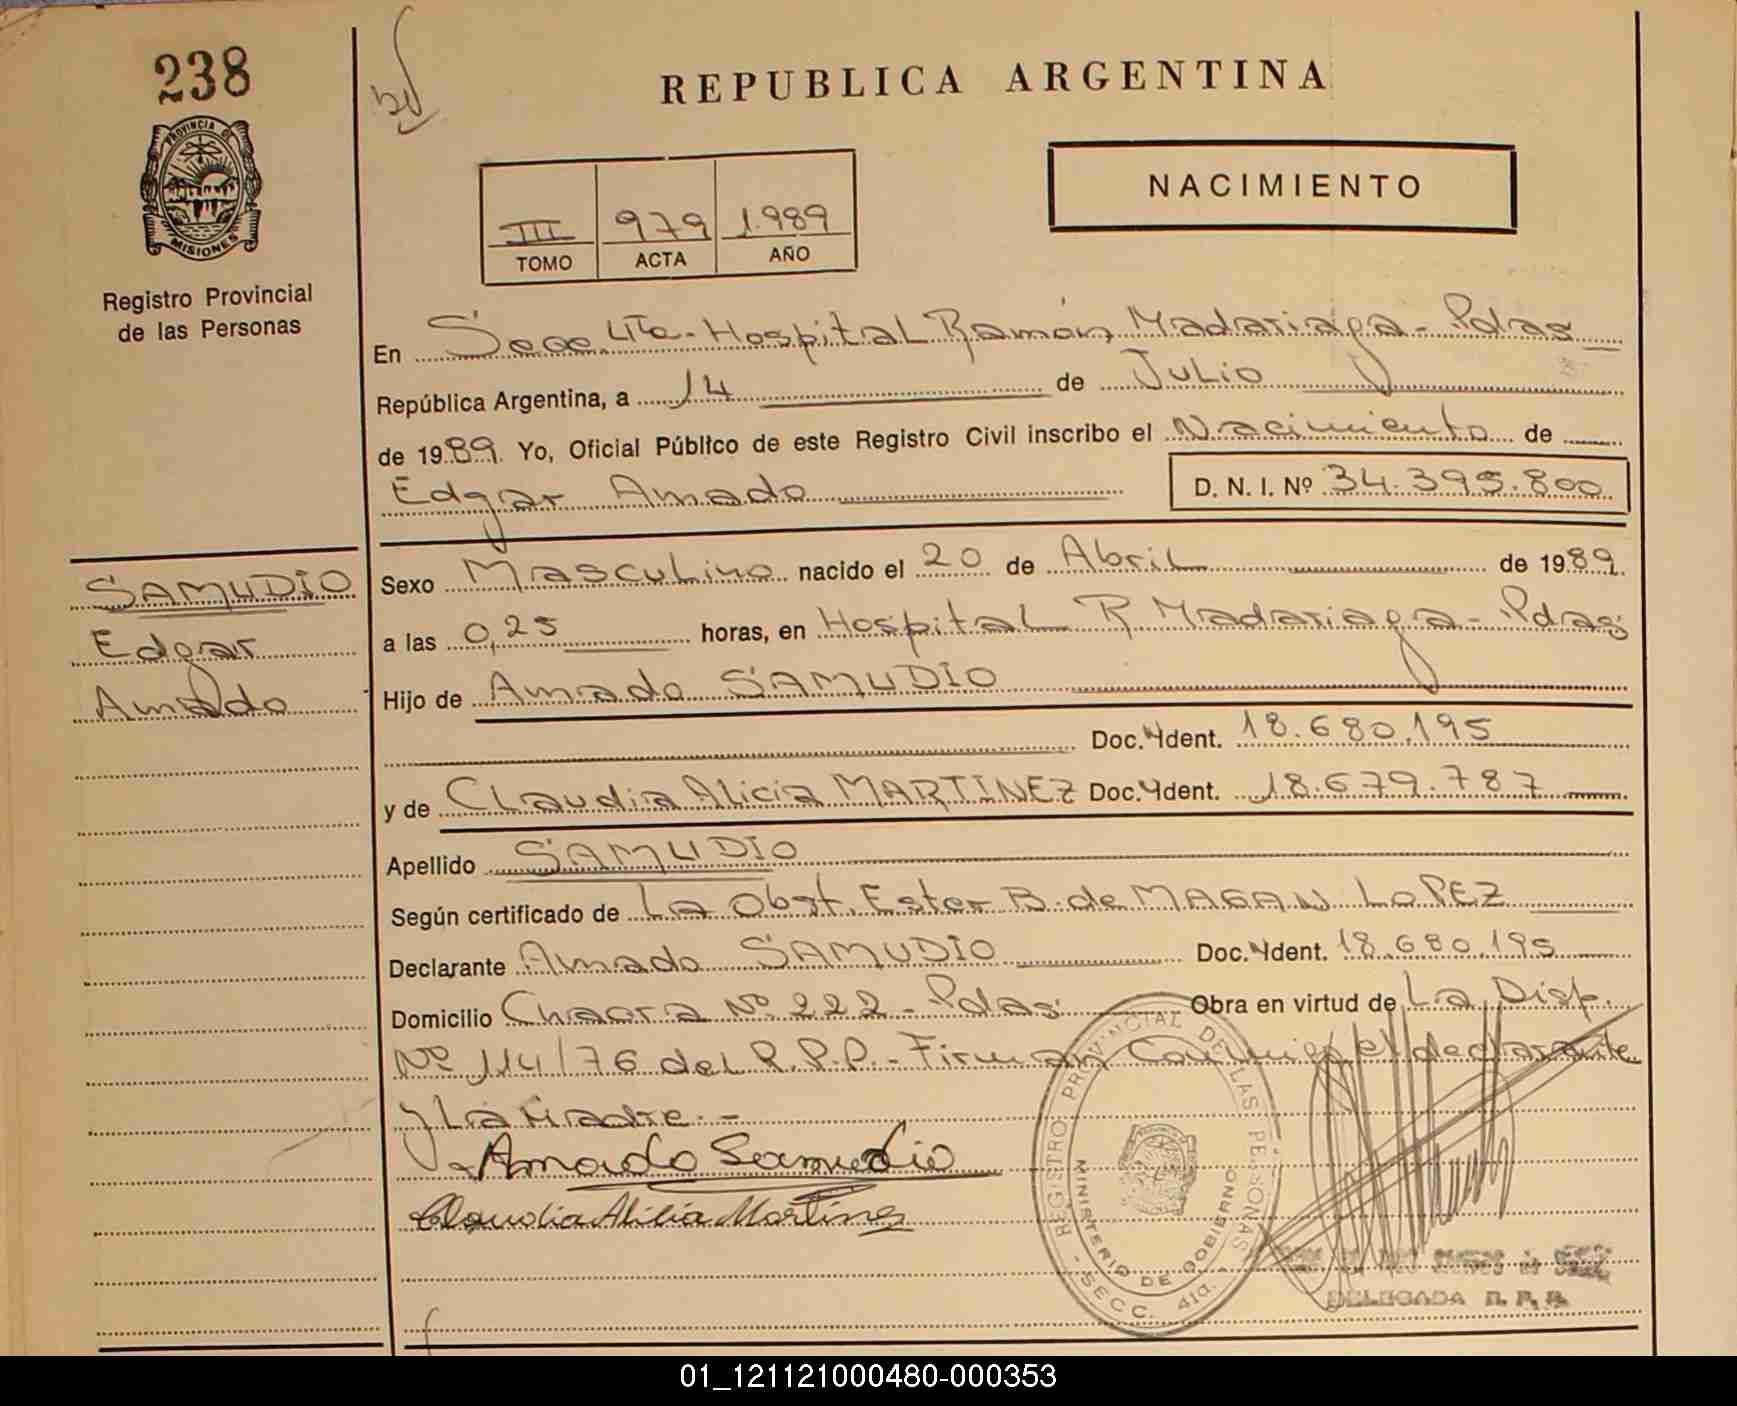 238
REPUBLICA ARGENTINA
PROVINCIA DE
MISIONES
Registro Provincial
de las Personas
NACIMIENTO
III 979 1.989
TOMO ACTA AÑO
En Secc. 4ta - Hospital Ramón Madariaga - Pdas
República Argentina, a 14 de Julio
de 1989. Yo, Oficial Público de este Registro Civil inscribo el Nacimiento de
Edgar Amado D. N. I. Nº 34.395.800
SAMUDIO
Edgar
Amado
Sexo Masculino nacido el 20 de Abril de 1989.
a las 0,25 horas, en Hospital R Madariaga - Pdas
Hijo de Amado SAMUDIO
Doc. Ident. 18.680.195
y de Claudia Alicia MARTINEZ Doc. Ident. 18.679.787
Apellido SAMUDIO
Según certificado de La Obst. Ester B. de MAGAN LOPEZ
Declarante Amado SAMUDIO Doc. Ident. 18.680.195
Domicilio Chacra Nº 222 - Pdas. Obra en virtud de La Disp.
Nº 114/76 del R.P.P. - Firman Conmigo el declarante
y La Madre. -
Amado Samudio
Claudia Alicia Martinez
REGISTRO PROVINCIAL DE LAS PERSONAS
MINISTERIO DE GOBIERNO
SECC. 4ta.
DELEGADA R. P. P.
01_121121000480-000353